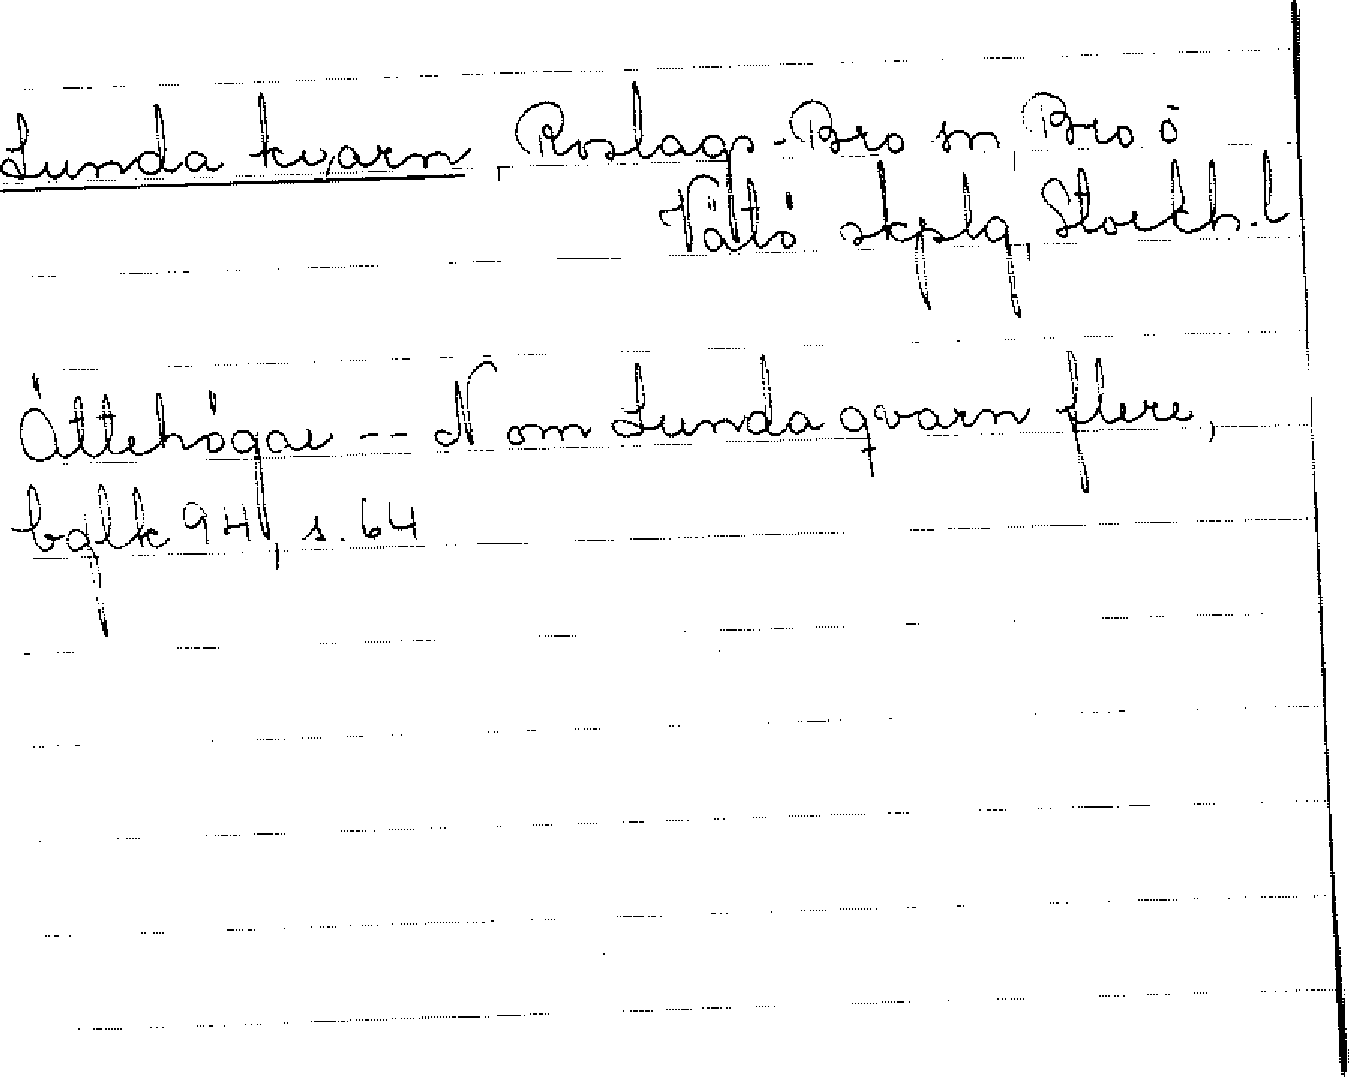 Lunda kvarn, Roslags-Bro sn, Bro o
Vätö skplg, Stockh. l
Ättehögar -- N om Lunda qvarn flere,
bglk 94, s. 64